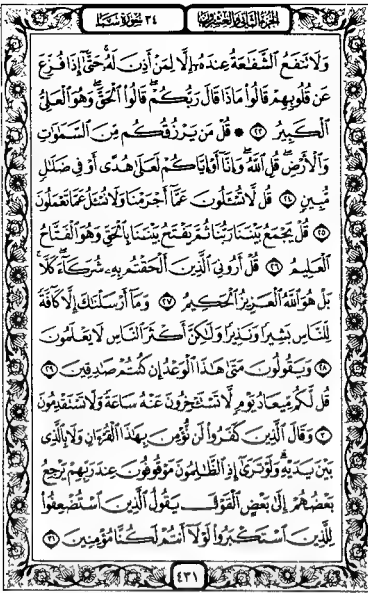 الجزء الثاني والعشرون ٣٤ سورة سبأ
وَلَا تَنفَعُ ٱلشَّفَٰعَةُ عِندَهُۥٓ إِلَّا لِمَنْ أَذِنَ لَهُۥ حَتَّىٰٓ إِذَا فُزِّعَ
عَن قُلُوبِهِمْ قَالُوا۟ مَاذَا قَالَ رَبُّكُمْ ۖ قَالُوا۟ ٱلْحَقَّ ۖ وَهُوَ ٱلْعَلِىُّ
ٱلْكَبِيرُ ٢٣ ۞ قُلْ مَن يَرْزُقُكُم مِّنَ ٱلسَّمَٰوَٰتِ
وَٱلْأَرْضِ ۖ قُلِ ٱللَّهُ ۖ وَإِنَّآ أَوْ إِيَّاكُمْ لَعَلَىٰ هُدًى أَوْ فِى ضَلَٰلٍ
مُّبِينٍ ٢٤ قُل لَّا تُسْـَٔلُونَ عَمَّآ أَجْرَمْنَا وَلَا نُسْـَٔلُ عَمَّا تَعْمَلُونَ
٢٥ قُلْ يَجْمَعُ بَيْنَنَا رَبُّنَا ثُمَّ يَفْتَحُ بَيْنَنَا بِٱلْحَقِّ وَهُوَ ٱلْفَتَّاحُ
ٱلْعَلِيمُ ٢٦ قُلْ أَرُونِىَ ٱلَّذِينَ أَلْحَقْتُم بِهِۦ شُرَكَآءَ ۖ كَلَّا ۚ
بَلْ هُوَ ٱللَّهُ ٱلْعَزِيزُ ٱلْحَكِيمُ ٢٧ وَمَآ أَرْسَلْنَٰكَ إِلَّا كَآفَّةً
لِّلنَّاسِ بَشِيرًا وَنَذِيرًا وَلَٰكِنَّ أَكْثَرَ ٱلنَّاسِ لَا يَعْلَمُونَ
٢٨ وَيَقُولُونَ مَتَىٰ هَٰذَا ٱلْوَعْدُ إِن كُنتُمْ صَٰدِقِينَ ٢٩
قُل لَّكُم مِّيعَادُ يَوْمٍ لَّا تَسْتَـْٔخِرُونَ عَنْهُ سَاعَةً وَلَا تَسْتَقْدِمُونَ
٣٠ وَقَالَ ٱلَّذِينَ كَفَرُوا۟ لَن نُّؤْمِنَ بِهَٰذَا ٱلْقُرْءَانِ وَلَا بِٱلَّذِى
بَيْنَ يَدَيْهِ ۗ وَلَوْ تَرَىٰٓ إِذِ ٱلظَّٰلِمُونَ مَوْقُوفُونَ عِندَ رَبِّهِمْ يَرْجِعُ
بَعْضُهُمْ إِلَىٰ بَعْضٍ ٱلْقَوْلَ يَقُولُ ٱلَّذِينَ ٱسْتُضْعِفُوا۟
لِلَّذِينَ ٱسْتَكْبَرُوا۟ لَوْلَآ أَنتُمْ لَكُنَّا مُؤْمِنِينَ ٣١
٤٣١